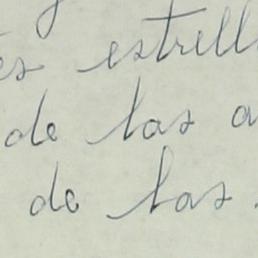 es estrell
de las a
de las